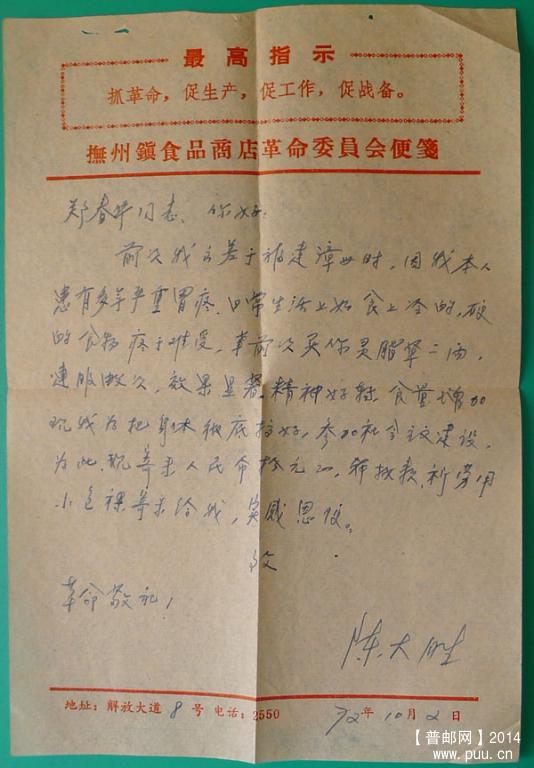 最高指示
抓革命，促生产，促工作，促战备。
撫州鎮食品商店革命委員会便箋
郑春华同志、你好：
前次我出差于福建漳州时，因我本人
患有多年严重胃疼，日常生活上如食上冷的，硬
的食物疼于难受，前次买你灵脂草二两，
连服数次，效果显著，精神好转，食量增加
现我为把身体彻底搞好，参加社会主义建设，
为此现寄来人民币拾元正，
小包裹寄来给我，实感恩便。
致
革命敬礼！
陈大胜
地址：解放大道8号 电话：2550
72年10月2日
【普邮网】2014
www.puu.cn